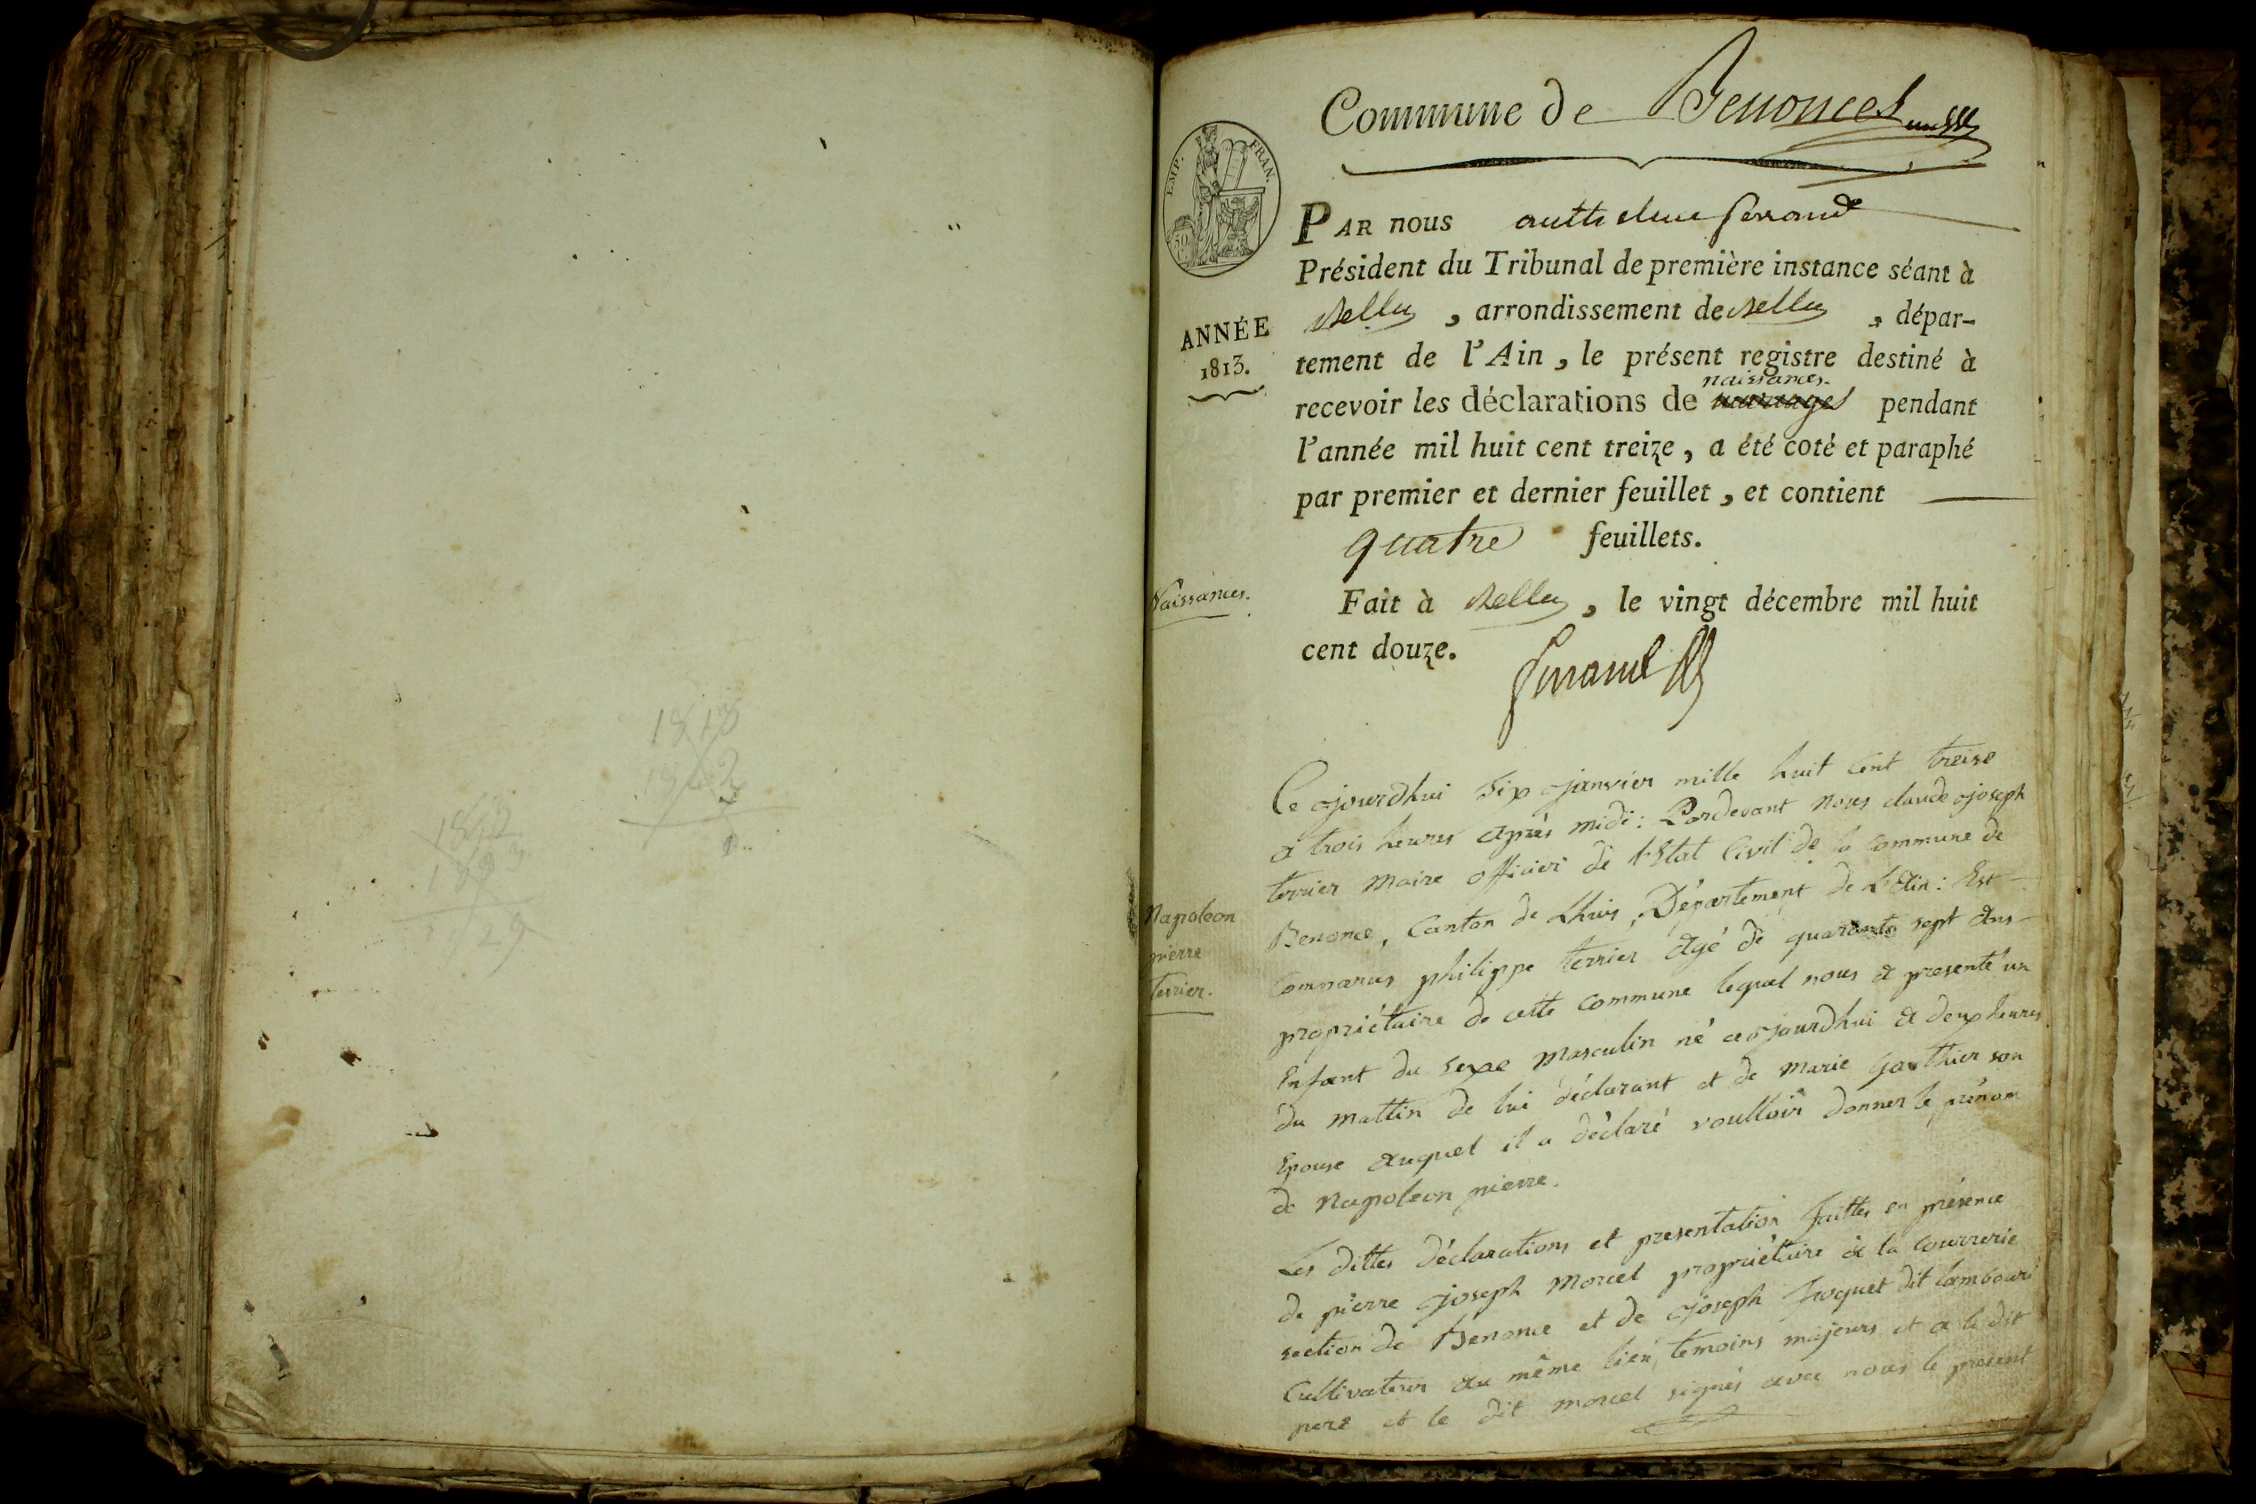 1818
1842
1822
1893
29
Commune de Benonces
EMP. FRAN.
50
PAR nous anthelme ferrand
Président du Tribunal de première instance séant à
Belley, arrondissement de Belley, dépar-
ANNÉE
1813.
tement de l'Ain, le présent registre destiné à
naissances.
recevoir les déclarations de mariages pendant
l'année mil huit cent treize, a été coté et paraphé
par premier et dernier feuillet, et contient
quatre feuillets.
Naissances.
Fait à Belley, le vingt décembre mil huit
cent douze.
ferrand
Ce ojourdhui six janvier mille huit cent treise
a trois heures après midi : Pardevant nous claude joseph
terrier Maire officier de l'Etat Civil de la commune de
Napoleon
pierre
terrier.
Benonce, Canton de Lhuis, Département de L'Ain : Est
Comparus philippe terrier Agé de quarante sept Ans
propriétaire de cette Commune lequel nous a presenté un
Enfant du sexe Masculin né ce ojourdhui a deux heures
du mattin de lui déclarant et de Marie Gauthier son
Epouse auquel il a déclaré voulloir donner le prénom
de Napoleon pierre.
Les dittes déclarations et presentation faittes en présence
de pierre joseph Morcel propriétaire de la Courrerie
section de Benonce et de joseph Troquet dit lambouri
Cultivateur du même lieu, temoins majeurs et a le dit
pere et le dit morcel signés avec nous le present